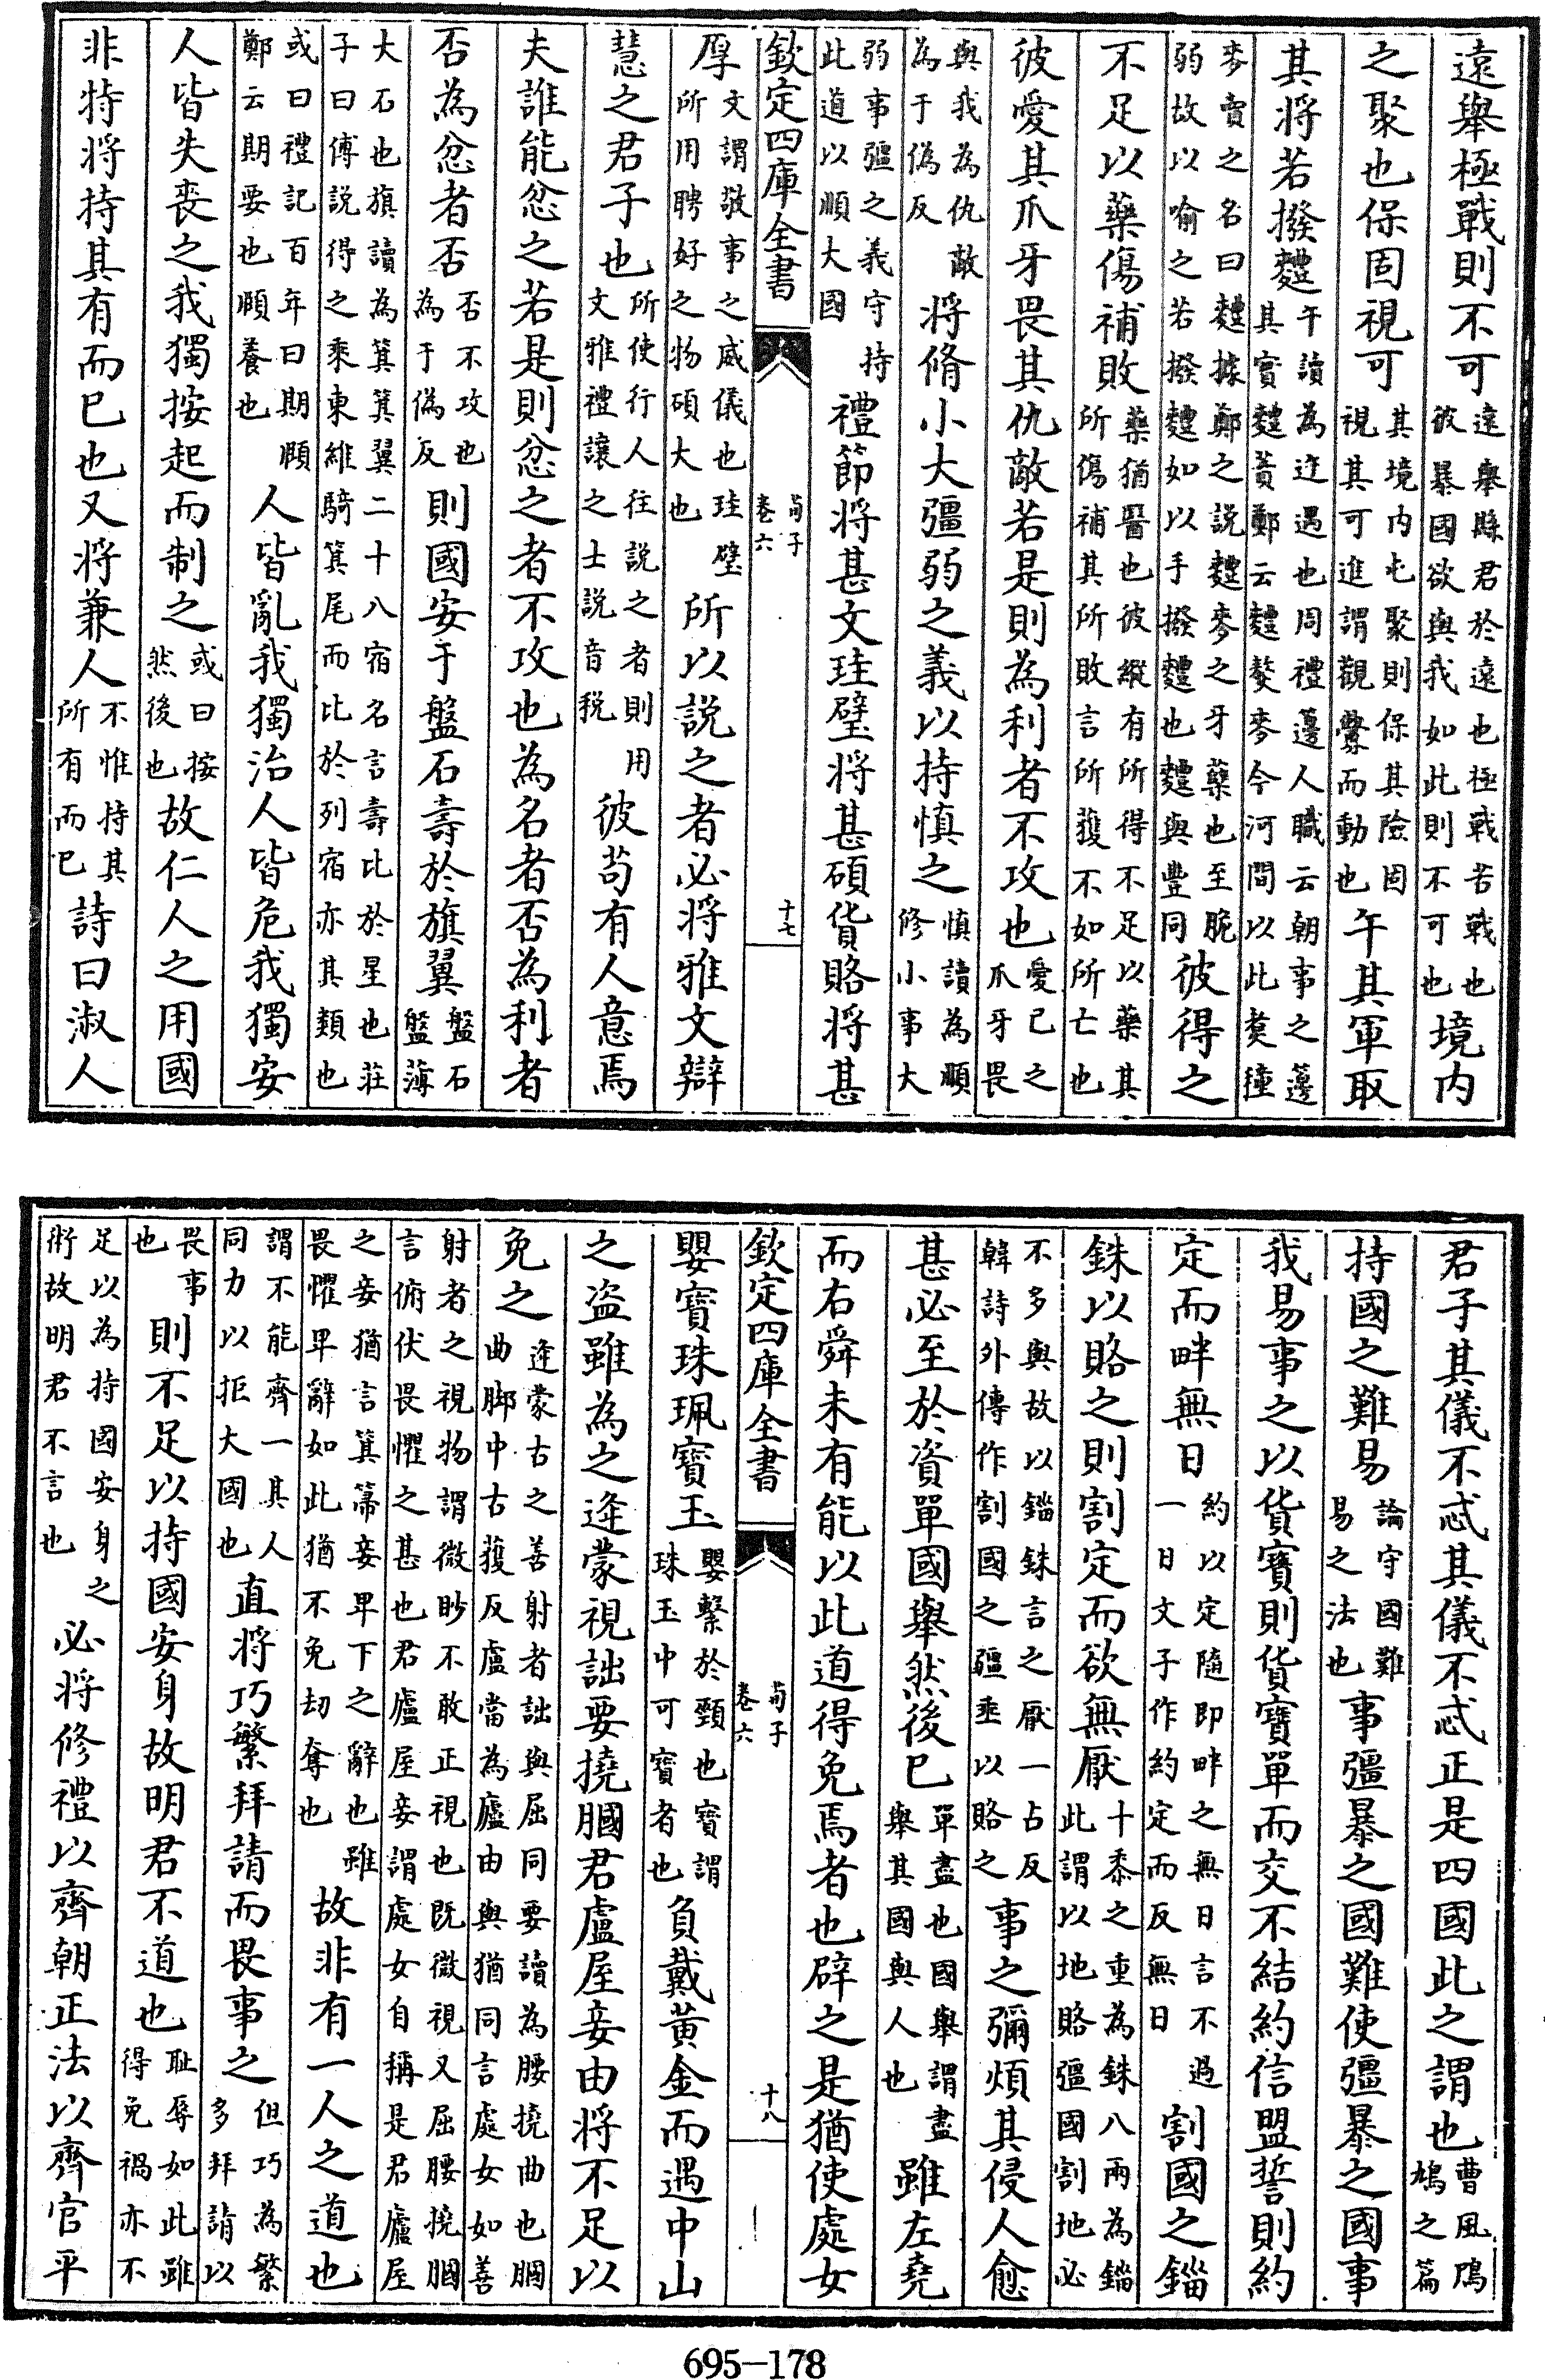 遠舉極戰則不可遠舉縣君於遠也極戰苦戰也彼暴國欲與我如此則不可也境内
之聚也保固視可其境内屯聚則保其險固視其可進謂觀釁而動也午其軍取
其将若撥麷午讀為迕遇也周禮籩人職云朝事之籩其實麷蕡鄭云麷熬麥今河間以北煑穜
麥賣之名曰麷據鄭之説麷麥之牙蘖也至脆弱故以喻之若撥麷如以手撥麷也麷與豐同彼得之
不足以藥傷補敗藥猶醫也彼縱有所得不足以藥其所傷補其所敗言所獲不如所亡也
彼愛其爪牙畏其仇敵若是則為利者不攻也愛己之爪牙畏
與我為仇敵為于偽反将脩小大彊弱之義以持慎之慎讀為順修小事大
弱事彊之義守持此道以順大國禮節将甚文珪璧将甚碩貨賂将甚
欽定四庫全書 荀子卷六 十七
厚文謂敬事之威儀也珪璧所用聘好之物碩大也所以説之者必将雅文辯
慧之君子也所使行人往説之者則用文雅禮讓之士説音税彼苟有人意焉
夫誰能忿之若是則忿之者不攻也為名者否為利者
否為忿者否否不攻也為于偽反則國安于盤石壽於旗翼盤石盤薄
大石也旗讀為箕箕翼二十八宿名言壽比於星也莊子曰傅説得之乘東維騎箕尾而比於列宿亦其類也
或曰禮記百年曰期頥鄭云期要也頥養也人皆亂我獨治人皆危我獨安
人皆失喪之我獨按起而制之或曰按然後也故仁人之用國
非特将持其有而已也又将兼人不惟持其所有而已詩曰淑人
君子其儀不忒其儀不忒正是四國此之謂也曹風鳲鳩之篇
持國之難易論守國難易之法也事彊暴之國難使彊暴之國事
我易事之以貨寳則貨寳單而交不結約信盟誓則約
定而畔無日約以定隨即畔之無日言不過一日文子作約定而反無日割國之錙
銖以賂之則割定而欲無厭十黍之重為銖八兩為錙此謂以地賂彊國割地必
不多與故以錙銖言之厭一占反韓詩外傳作割國之疆垂以賂之事之彌煩其侵人愈
甚必至於資單國舉然後已單盡也國舉謂盡舉其國與人也雖左堯
而右舜未有能以此道得免焉者也辟之是猶使處女
欽定四庫全書 荀子卷六 十八
嬰寳珠珮寳玉嬰繫於頸也寳謂珠玉中可寳者也負戴黄金而遇中山
之盗雖為之逄蒙視詘要撓膕君盧屋妾由将不足以
免之逄蒙古之善射者詘與屈同要讀為腰撓曲也膕曲脚中古獲反盧當為廬由與猶同言處女如善
射者之視物謂微眇不敢正視也既微視又屈腰撓膕言俯伏畏懼之甚也君廬屋妾謂處女自稱是君廬屋
之妾猶言箕箒妾卑下之辭也雖畏懼卑辭如此猶不免刼奪也故非有一人之道也
謂不能齊一其人同力以拒大國也直将巧繁拜請而畏事之但巧為繁多拜請以
畏事也則不足以持國安身故明君不道也耻辱如此雖得免禍亦不
足以為持國安身之術故明君不言也必将修禮以齊朝正法以齊官平
695-178